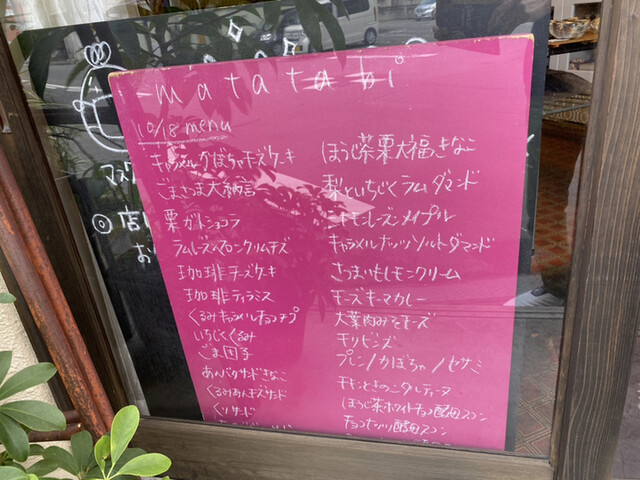 matatabi
10/18 menu
キャラメルかぼちゃチーズケーキ
ごまさつま大納言
栗ガトショコラ
ラムレーズンマロンクリームチーズ
珈琲チーズケーキ
珈琲ティラミス
くるみキャラメルチョコチップ
いちじくくるみ
ごま団子
あんバタサンドきなこ
くるみあんチーズサンド
くりサンド
ほうじ茶栗大福きなこ
梨といちじくラムダマンド
シナモンレーズンメイプル
キャラメルナッツソルトダマンド
さつまいもレモンクリーム
チーズキーマカレー
大葉肉みそチーズ
チリビーンズ
プレーン/かぼちゃ/セサミ
チキンときのこタルティーヌ
ほうじ茶ホワイトチョコ酵母スコン
チョコナッツ酵母スコン
マス
◎店
お